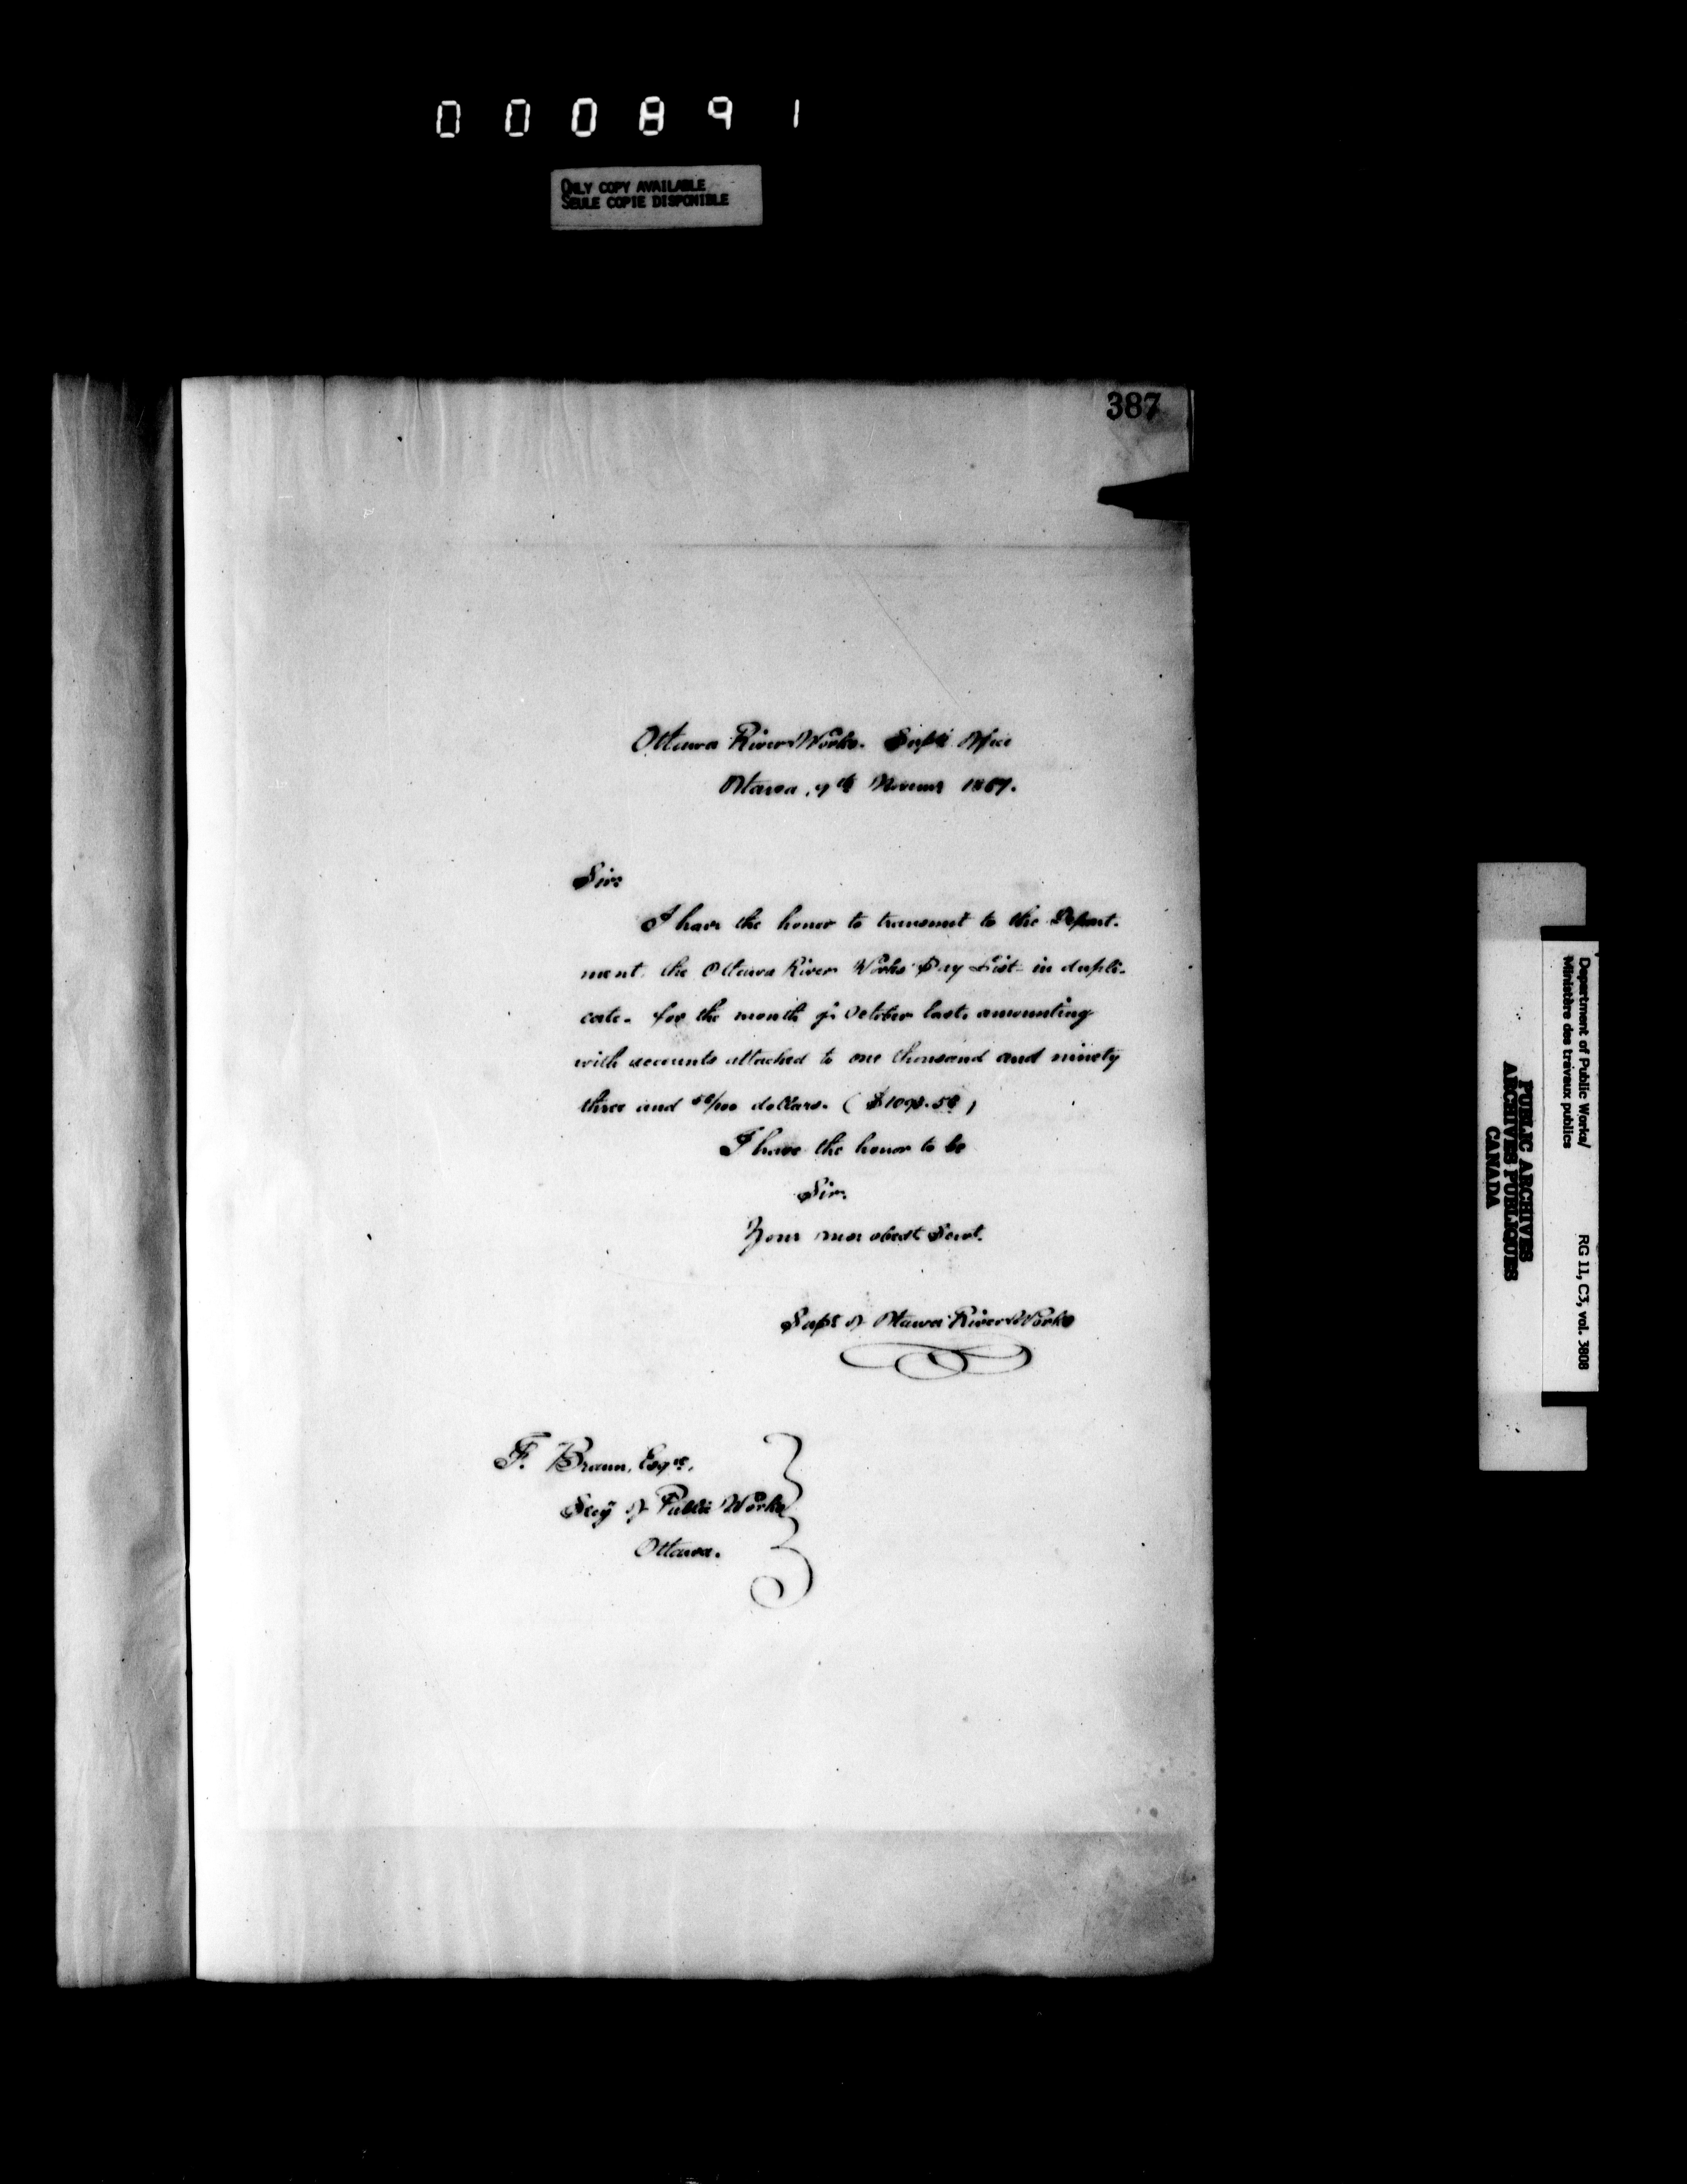 000891
ONLY COPY AVAILABLE
SEULE COPIE DISPONIBLE
387
Ottawa River Works. Supts Office
Ottawa, 9th Novemr 1867.
Sir:
I have the honor to transmit to the Depart-
ment, the Ottawa River Works Pay List in dupli-
cate. for the month of October last, amounting
with accounts attached to one thousand and ninety
three and /100 dollars. (
I have the honor to be
Sir.
Your most obedt Servt.
Supt of Ottawa River Works
F. Braun, Esqre,
Secy of Public Works
Ottawa.
Department of Public Works/
Ministère des travaux publics
RG 11, C3, vol. 3808
PUBLIC ARCHIVES
ARCHIVES PUBLIQUES
CANADA